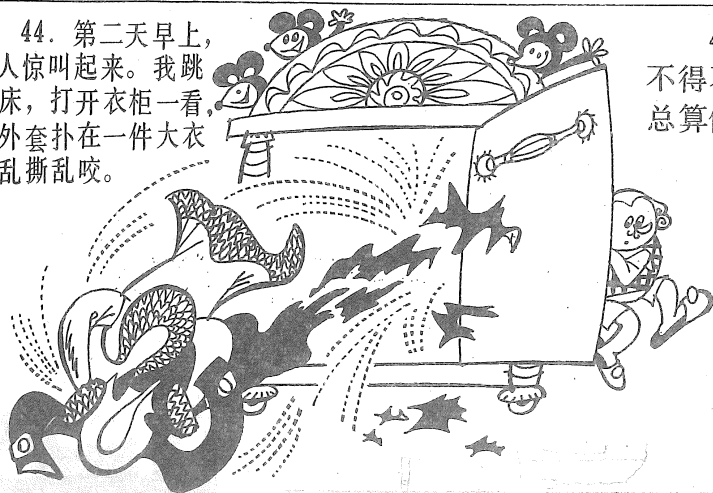 44. 第二天早上,
人惊叫起来。我跳
床，打开衣柜一看，
外套扑在一件大衣
乱撕乱咬。
不得
总算